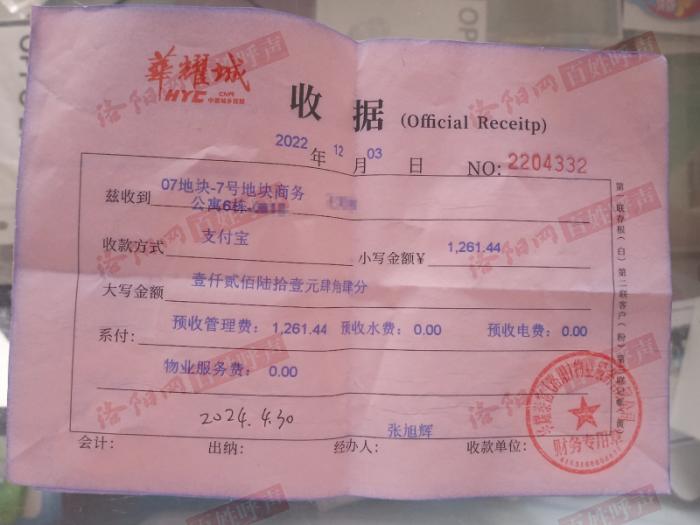 華耀城
HYC CNR
收据 (Official Receitp)
2022 年 12 月 03 日 NO: 2204332
兹收到 07地块-7号地块商务
公寓6栋
收款方式 支付宝 小写金额￥ 1,261.44
大写金额 壹仟贰佰陆拾壹元肆角肆分
系付: 预收管理费: 1,261.44 预收水费: 0.00 预收电费: 0.00
物业服务费: 0.00
2024.4.30
张旭辉
会计: 出纳: 经办人: 收款单位:
财务专用章
第一联存根(白) 第二联客户(粉)
洛阳网 百姓呼声